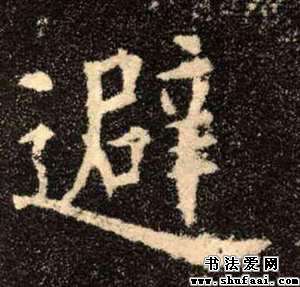 避
书法爱网
www.shufaai.com